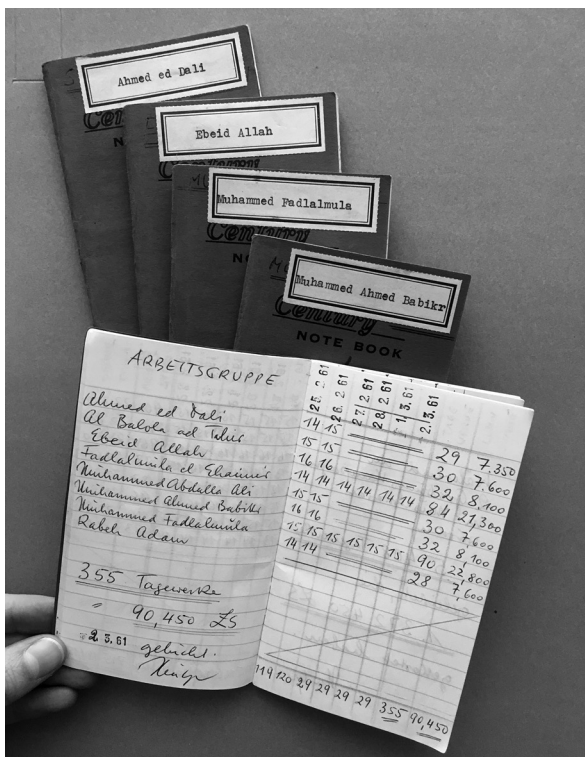 Ahmed ed Dali
Cen
N
Ebeid Allah
Century
Muhammed Fadlalmula
Century
N
Muhammed Ahmed Babikr
Century
NOTE BOOK
ARBEITSGRUPPE
Ahmed ed Dali
Al Balola ad Tahir
Ebeid Allah
Fadlalmula el
Muhammed Abdalla Ali
Muhammed Ahmed Babikr
Muhammed Fadlalmula
Rabeh Adam
355 Tagewerke
" 90,450 £S
-2. 3. 61 gebucht.
25. 2. 61 26. 2. 61 27. 2. 61 28. 2. 61 -1. 3. 61 -2. 3. 61
14 15 29 7.350
15 15 30 7.600
16 16 32 8.100
14 14 14 14 14 14 84 21,300
15 15 30 7,600
16 16 32 8,100
15 15 15 15 15 15 90 22,800
14 14 28 7,600
119 120 29 29 29 29 355 90,450